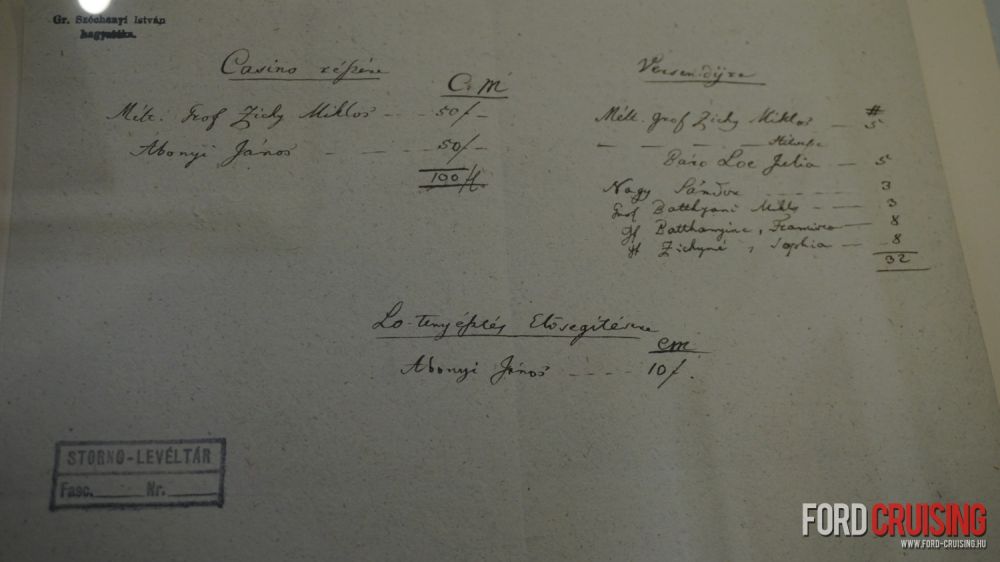 Gr. Széchenyi István
hagyatéka.
Casino részére
C. M
Mélt. Grof Zichy Miklos - - 50f -
Abonyi János - - - - 50f -
100f
Versendíjra
#
Mélt. Grof Zichy Miklos - 5
Báro Loe Julia - 5
Nagy Sándor - - - - 3
Grof Batthyani Miklos - - - 3
Gf Batthanyine, Francisca - 8
Gf Zichyné, Sophia - 8
32
Lo-tenyésztés Elősegítésére
CM
Abonyi János - - - - 10f.
STORNO-LEVÉLTÁR
Fasc. Nr.
FORD CRUISING
WWW.FORD-CRUISING.HU